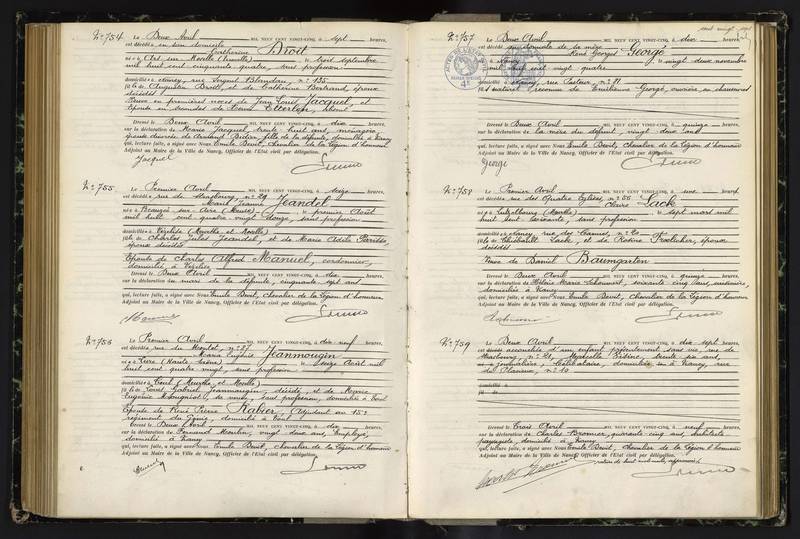 N° 754 Le Deux Avril MIL NEUF CENT VINGT-CINQ, à sept heures,
est décédée en son domicile
Catherine Droit
née à Ars sur Moselle (Moselle) le trois septembre
mil huit cent cinquante quatre, sans profession
domiciliée à Nancy, rue Sergent Blandan, n° 135
fille de Augustin Droit, et de Catherine Bertrand, époux
décédés
Veuve en premières noces de Jean Louis Jacquel, et
Epouse en secondes de
Dressé le Deux Avril MIL NEUF CENT VINGT-CINQ, à dix heures,
sur la déclaration de Marie Jacquel, trente huit ans, ménagère
fille de la défunte, domiciliée à Nancy
qui, lecture faite, a signé avec Nous Emile Benit, Chevalier de la Légion d'honneur
Adjoint au Maire de la Ville de Nancy, Officier de l'Etat civil par délégation.
Jacquel
N° 755 Le Premier Avril MIL NEUF CENT VINGT-CINQ, à seize heures,
est décédée rue de Strasbourg, n° 29
Marie Jeanne Jeandel
née à Beauzée sur Aire (Meuse) le premier Août
mil huit cent quatre vingt douze, sans profession
domiciliée à Vézelise (Meurthe et Moselle)
fille de Charles Jules Jeandel, et de Marie Adèle
époux décédés
Epouse de Charles Alfred Manuel, cordonnier,
domicilié à Vézelise
Dressé le Deux Avril MIL NEUF CENT VINGT-CINQ, à dix heures,
sur la déclaration du mari de la défunte, cinquante sept ans
qui, lecture faite, a signé avec Nous Emile Benit, Chevalier de la Légion d'honneur
Adjoint au Maire de la Ville de Nancy, Officier de l'Etat civil par délégation.
N° 756 Le Premier Avril MIL NEUF CENT VINGT-CINQ, à dix neuf heures,
est décédée rue du Montet, n° 37
Marie Eugénie Jeanmougin
née à Lure (Haute Saône) le seize Août mil
huit cent quatre vingt, sans profession
domiciliée à Toul (Meurthe et Moselle)
fille de Louis Gabriel Jeanmougin, décédé, et de Marie
Eugénie Mougenot, sa veuve, sans profession, domiciliée à Toul
Epouse de René Pierre Rabier, Adjudant au 15e
régiment du Génie, domicilié à Toul
Dressé le Deux Avril MIL NEUF CENT VINGT-CINQ, à dix heures,
sur la déclaration de Fernand Moulin, vingt deux ans, employé,
domicilié à Nancy
qui, lecture faite, a signé avec Nous Emile Benit, chevalier de la Légion d'honneur
Adjoint au Maire de la Ville de Nancy, Officier de l'Etat civil par délégation.
cent vingt sept
N° 757 Le Deux Avril MIL NEUF CENT VINGT-CINQ, à dix heures,
est décédé au domicile de sa mère
René Georges Georgé
né à Nancy le vingt deux novembre
mil neuf cent vingt quatre
domicilié à Nancy, rue Pasteur, n° 71
fils naturel, reconnu de Emilienne Georgé, ouvrière en chaussures
Dressé le Deux Avril MIL NEUF CENT VINGT-CINQ, à quinze heures,
sur la déclaration de la mère du défunt, vingt deux ans
qui, lecture faite, a signé avec Nous Emile Benit, Chevalier de la Légion d'honneur
Adjoint au Maire de la Ville de Nancy, Officier de l'Etat civil par délégation.
Georgé
N° 758 Le Premier Avril MIL NEUF CENT VINGT-CINQ, à onze heures,
est décédée rue des Quatre Eglises, n° 55
Claire Lack
née à Lutzelbourg (Moselle) le sept mars mil
huit cent soixante, sans profession
domiciliée à Nancy, rue des Carmes, n° 20
fille de Thiébault Lack, et de Rosine Froelicher, époux
décédés
Veuve de Daniel Baumgarten
Dressé le Deux Avril MIL NEUF CENT VINGT-CINQ, à quinze heures,
sur la déclaration de Hélène Marie soixante cinq ans,
domiciliée à Nancy
qui, lecture faite, a signé avec Nous Emile Benit, Chevalier de la Légion d'honneur
Adjoint au Maire de la Ville de Nancy, Officier de l'Etat civil par délégation.
N° 759 Le Deux Avril MIL NEUF CENT VINGT-CINQ, à dix sept heures,
est accouchée d'un enfant présentement sans vie, rue de
Strasbourg, n° 29, trente six ans,
journalière, célibataire, domiciliée à Nancy, rue
n° 10
domicilié à
fil de
Dressé le Trois Avril MIL NEUF CENT VINGT-CINQ, à neuf heures,
sur la déclaration de Charles quarante cinq ans,
paysagiste, domicilié à Nancy
qui, lecture faite, a signé avec Nous Emile Benit, Chevalier de la Légion d'honneur
Adjoint au Maire de la Ville de Nancy, Officier de l'Etat civil par délégation.